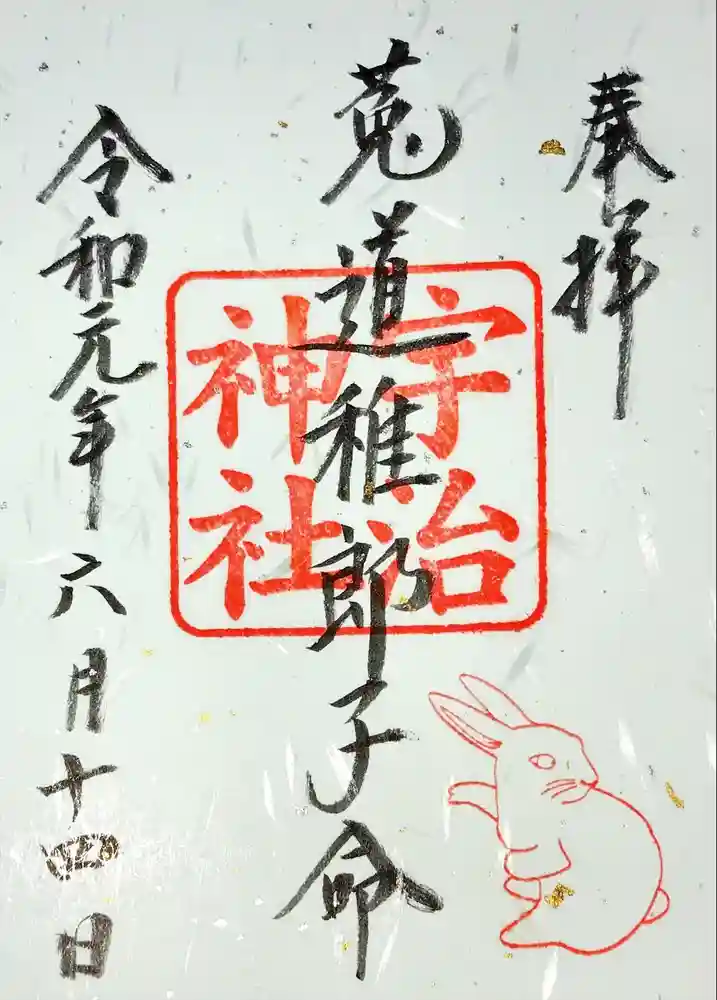 奉拝
菟道稚郎子命
宇治
神社
令和元年六月十四日